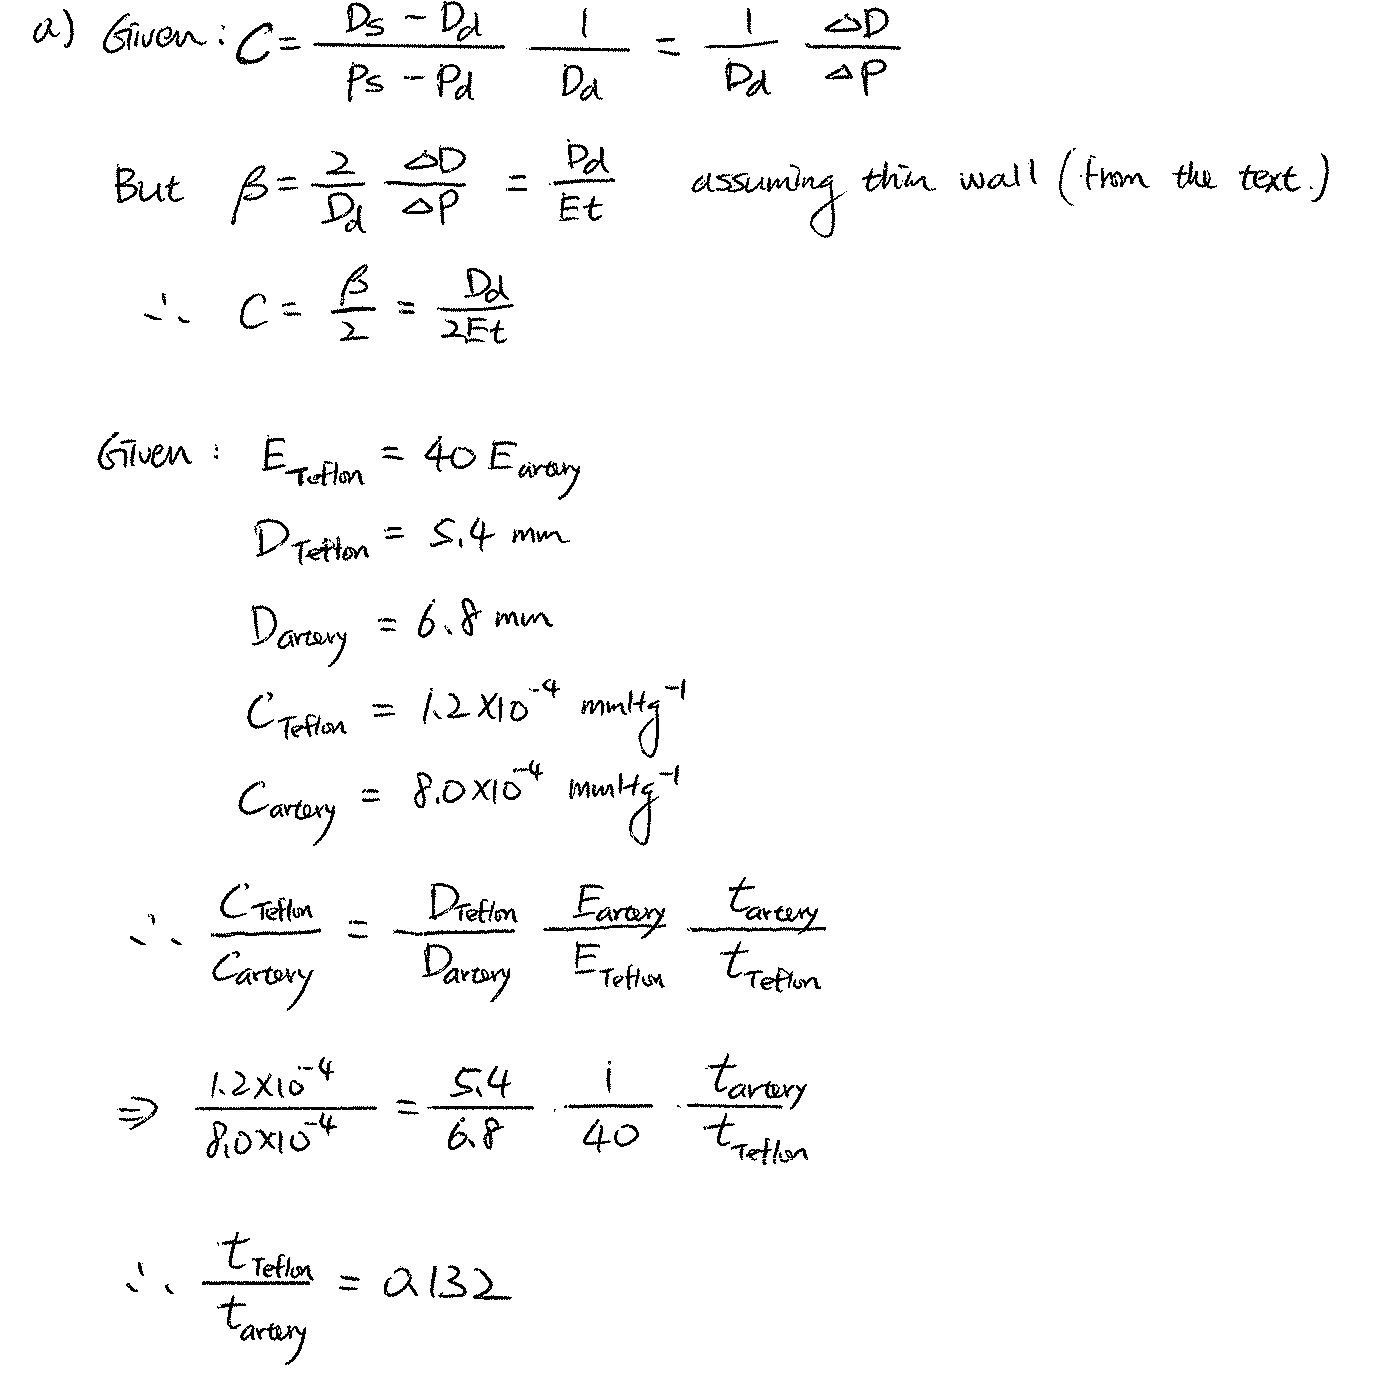 a) Given: C = (Ds - Dd)/(Ps - Pd) 1/Dd = 1/Dd ΔD/ΔP
But β = 2/Dd ΔD/ΔP = Dd/Et assuming thin wall (from the text.)
∴ C = β/2 = Dd/2Et
Given: E_Teflon = 40 E_artery
D_Teflon = 5.4 mm
D_artery = 6.8 mm
C_Teflon = 1.2×10^-4 mmHg^-1
C_artery = 8.0×10^-4 mmHg^-1
∴ C_Teflon/C_artery = D_Teflon/D_artery E_artery/E_Teflon t_artery/t_Teflon
⇒ 1.2×10^-4/8.0×10^-4 = 5.4/6.8 · 1/40 · t_artery/t_Teflon
∴ t_Teflon/t_artery = 0.132